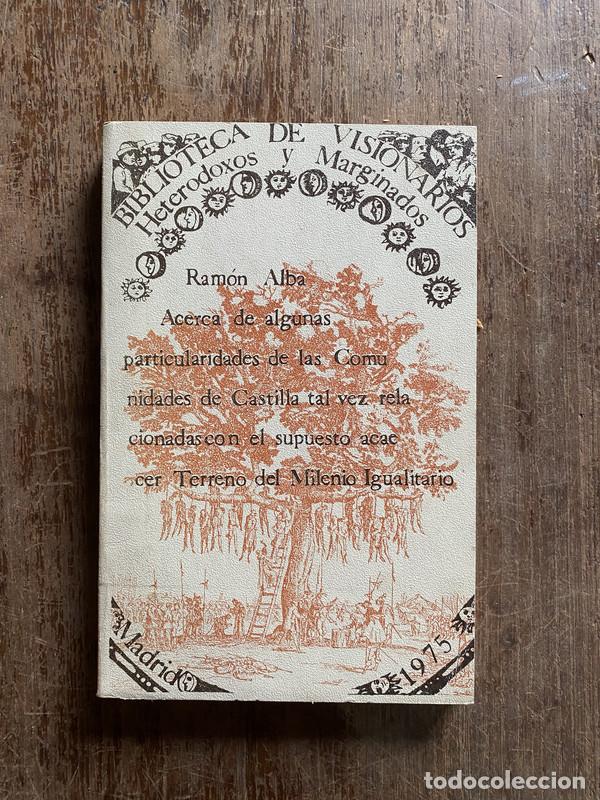 BIBLIOTECA DE VISIONARIOS
Heterodoxos y Marginados
Ramón Alba
Acerca de algunas
particularidades de las Comu
nidades de Castilla tal vez rela
cionadas con el supuesto acae
cer Terreno del Milenio Igualitario
Madrid
1975
todocoleccion